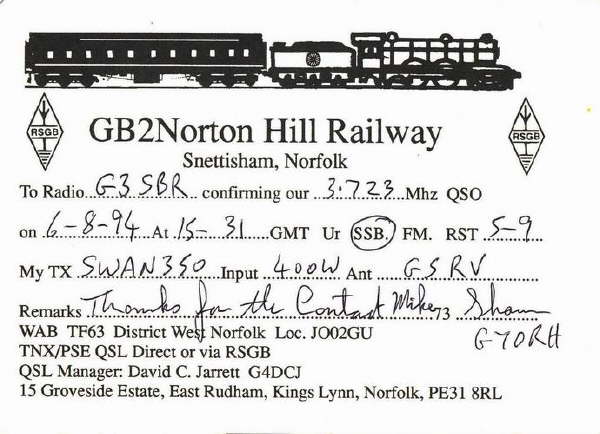 RSGB
RSGB
GB2Norton Hill Railway
Snettisham, Norfolk
To Radio G3SBR confirming our 3.723 Mhz QSO
on 6-8-94 At 15-31 GMT Ur SSB. FM. RST 5-9
My TX SWAN350 Input 400W Ant G5RV
Remarks Thanks for the Contact Mike 73 Shaun
G7ORH
WAB TF63 District West Norfolk Loc. JO02GU
TNX/PSE QSL Direct or via RSGB
QSL Manager: David C. Jarrett G4DCJ
15 Groveside Estate, East Rudham, Kings Lynn, Norfolk, PE31 8RL